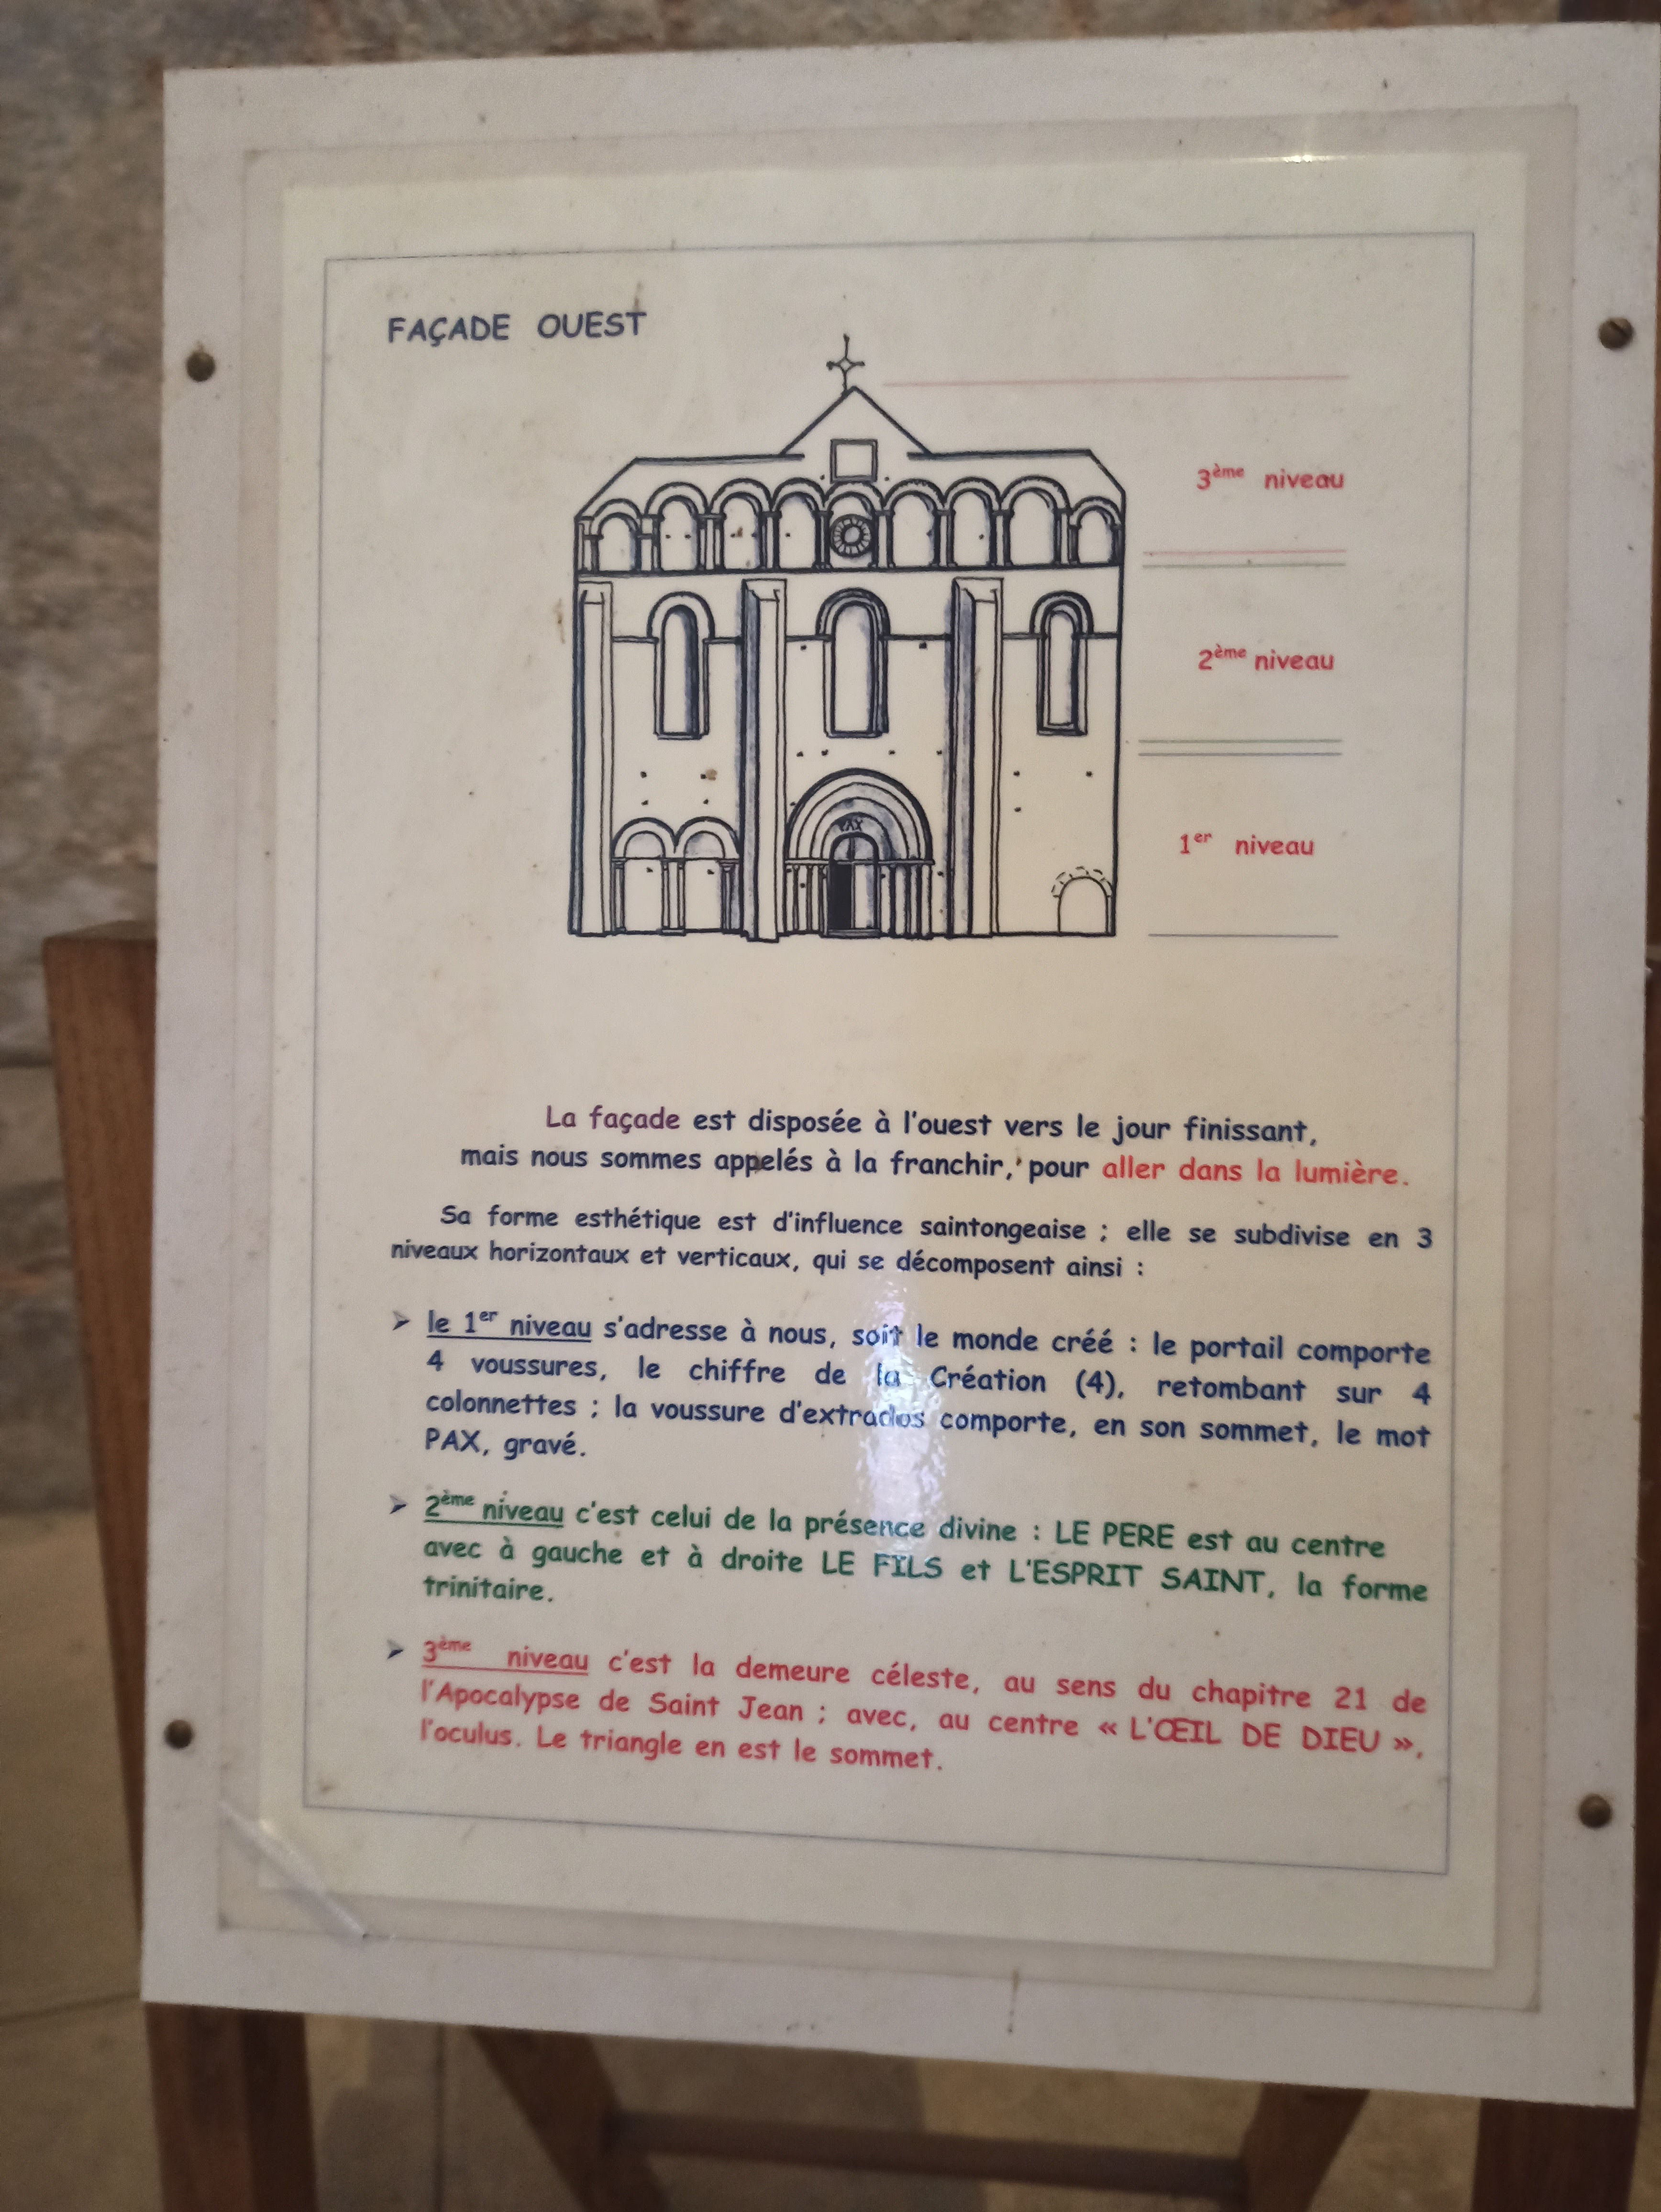 FAÇADE OUEST
3ème niveau
2ème niveau
PAX
1er niveau
La façade est disposée à l'ouest vers le jour finissant,
mais nous sommes appelés à la franchir, pour aller dans la lumière.
Sa forme esthétique est d'influence saintongeaise ; elle se subdivise en 3
niveaux horizontaux et verticaux, qui se décomposent ainsi :
➢ le 1er niveau s'adresse à nous, soit le monde créé : le portail comporte
4 voussures, le chiffre de la Création (4), retombant sur 4
colonnettes ; la voussure d'extrados comporte, en son sommet, le mot
PAX, gravé.
➢ 2ème niveau c'est celui de la présence divine : LE PERE est au centre
avec à gauche et à droite LE FILS et L'ESPRIT SAINT, la forme
trinitaire.
➢ 3ème niveau c'est la demeure céleste, au sens du chapitre 21 de
l'Apocalypse de Saint Jean ; avec, au centre « L'ŒIL DE DIEU »,
l'oculus. Le triangle en est le sommet.